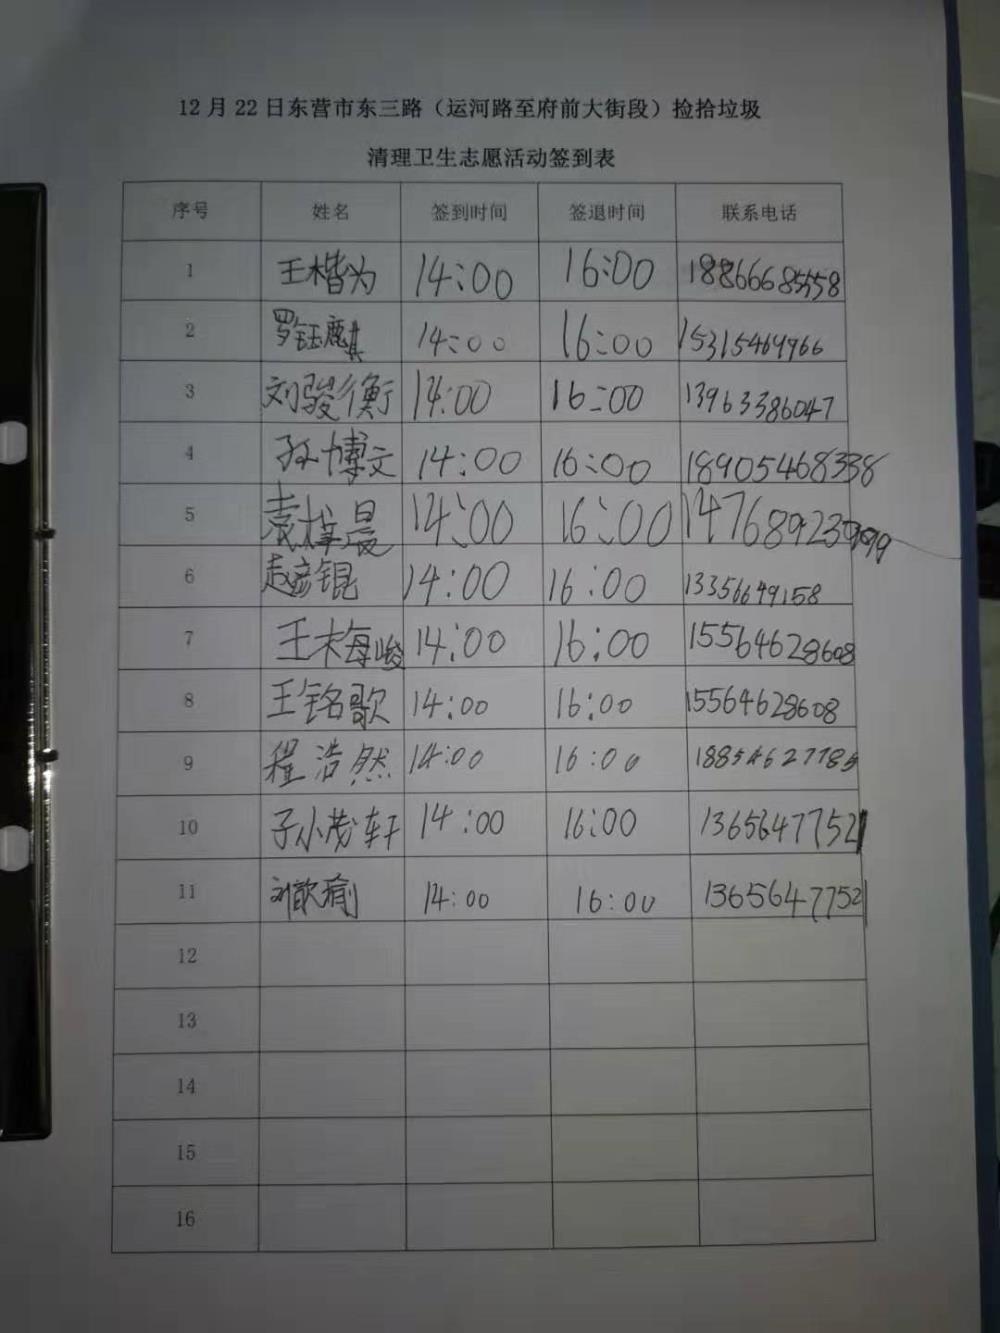 12月22日东营市东三路（运河路至府前大街段）捡拾垃圾
清理卫生志愿活动签到表
序号 姓名 签到时间 签退时间 联系电话
1 王楷为 14:00 16:00
2 罗钰麒 14:00 16:00 15315469966
3 刘骏衡 14:00 16:00 13963386047
4 孙博文 14:00 16:00 18905468338
5 袁梓晨 14:00 16:00
6 赵彦锟 14:00 16:00 13356649158
7 王梅峻 14:00 16:00 15564628608
8 王铭歌 14:00 16:00 15564628608
9 程浩然 14:00 16:00 18854627785
10 孙茂轩 14:00 16:00 13656477521
11 刘歆瑜 14:00 16:00 13656477521
12
13
14
15
16